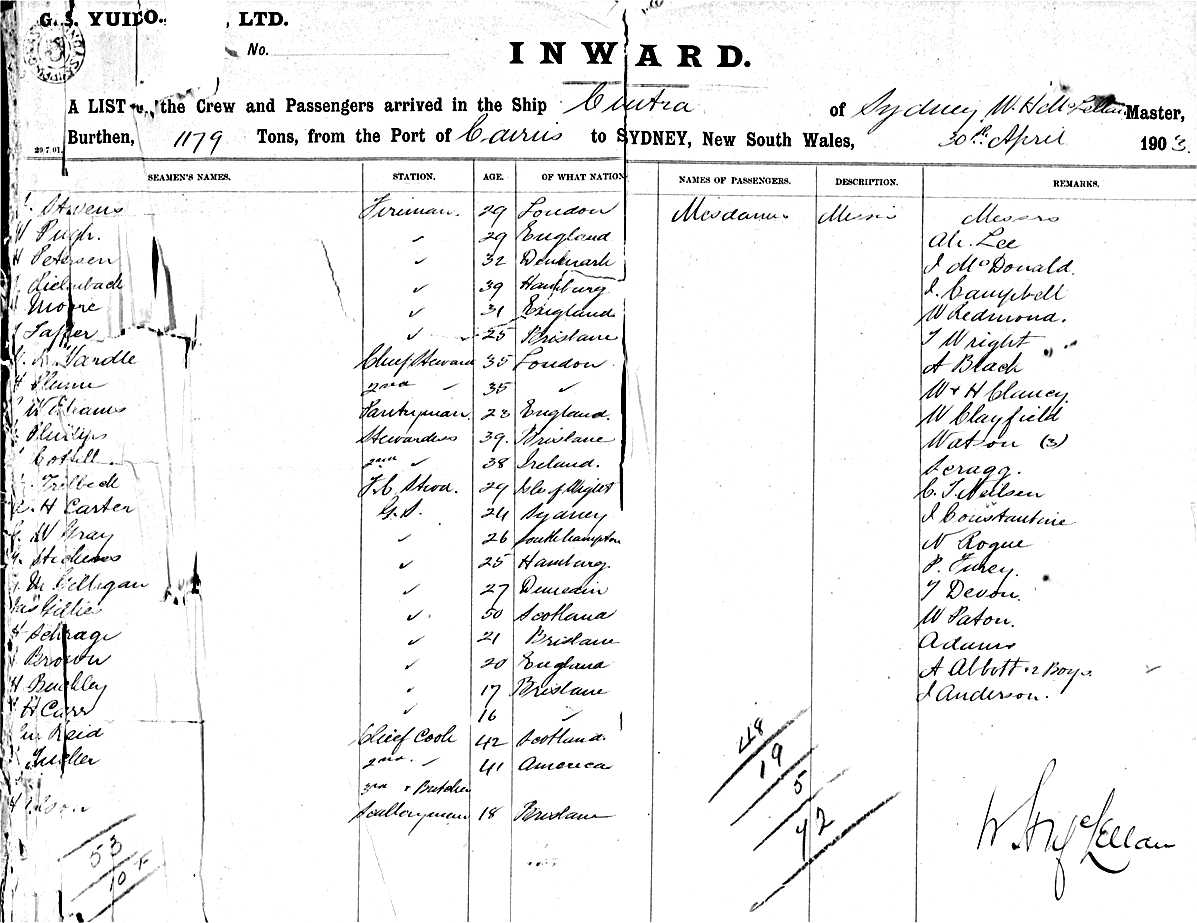 G. S. YUILL , LTD.
No.
INWARD.
A LIST of the Crew and Passengers arrived in the Ship Cintra of Sydney W. H. McLellan Master,
Burthen, 1179 Tons, from the Port of Cairns to SYDNEY, New South Wales, 30th April 1903.
29.7.01.
SEAMEN'S NAMES. STATION. AGE. OF WHAT NATION NAMES OF PASSENGERS. DESCRIPTION. REMARKS.
Stevens Fireman. 29 London Mesdames Messrs
Pugh. " 29 England Ah. Lee
H Petersen " 32 Denmark J McDonald.
" 39 Hamburg J. Campbell
Moore " 31 England W Redmond.
" 25 Brisbane T Wright
Yardle Chief Steward 35 London A Black
H 2nd " 35 " W & H Clancy.
Williams Pantryman. 23 England. W Clayfield
Philips Stewardess 39. Brisbane Watson (3)
2nd " 38 Ireland. Scragg.
F.C. Stwd. 29 Isle of Wight C. J. Neilsen
H Carter G.S. 24 Sydney J Constantine
W Gray " 26 Southhampton N Rogue
" 25 Hamburg. P. Furey.
" 27 Dunedin T Devon.
Gillies " 50 Scotland W Paton.
H Schrage " 21 Brisbane Adams
Brown " 20 England A Abbott & 2 Boys.
H Buckley " 17 Brisbane J Anderson.
" 16 "
Reid Chief Cook 42 Scotland.
2nd. " 41 America
3rd & Butcher
Sculleryman 18 Brisbane
48
19
5
72
53
10 F
W. H. McLellan